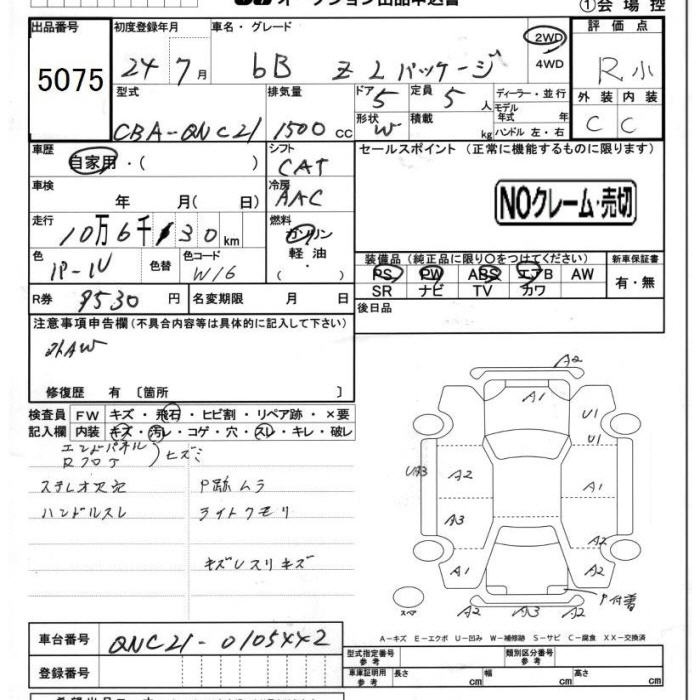 オークション出品申込書 ①会場控
出品番号 初度登録年月 車名・グレード 2WD 4WD 評価点
5075 24 7月 bB Z Lパッケージ R小
型式 排気量 ドア 5 定員 5人 ディーラー・並行 外装 内装
CBA-QNC21 1500cc 形状 W 積載 kg モデル年式 年 ハンドル 左・右 C C
車歴 自家用・( ) シフト CAT セールスポイント (正常に機能するものに限ります)
車検 年 月( 日) 冷房 AAC NOクレーム・売切
走行 10万6千 30km 燃料 ガソリン 軽油 ( )
色 パール 色替 色コード W16 装備品 (純正品に限り○をつけてください) 新車保証書
PS PW ABS エアB AW 有・無
SR ナビ TV カワ
R券 9530円 名変期限 月 日 後日品
注意事項申告欄(不具合内容等は具体的に記入して下さい)
社外AW
修復歴 有 〔箇所 〕
検査員 FW キズ・飛石・ヒビ割・リペア跡・×要
記入欄 内装 キズ・汚レ・コゲ・穴・スレ・キレ・破レ
エンドパネル
Rフロア ヒズミ
ステレオ欠品 P跡ムラ
ハンドルスレ ライトクモリ
キズレスリキズ
A2
A1 U1
U1
UA3 A2 A1
A3 A2
A1 A2
P付着
スペア A2 A3 A2
A-キズ E-エクボ U-凹み W-補修跡 S-サビ C-腐食 XX-交換済
車台番号 QNC21-0105442 型式指定番号 参考 類別区分番号 参考
登録番号 車庫証明用 参考 長さ cm 幅 cm 高さ cm